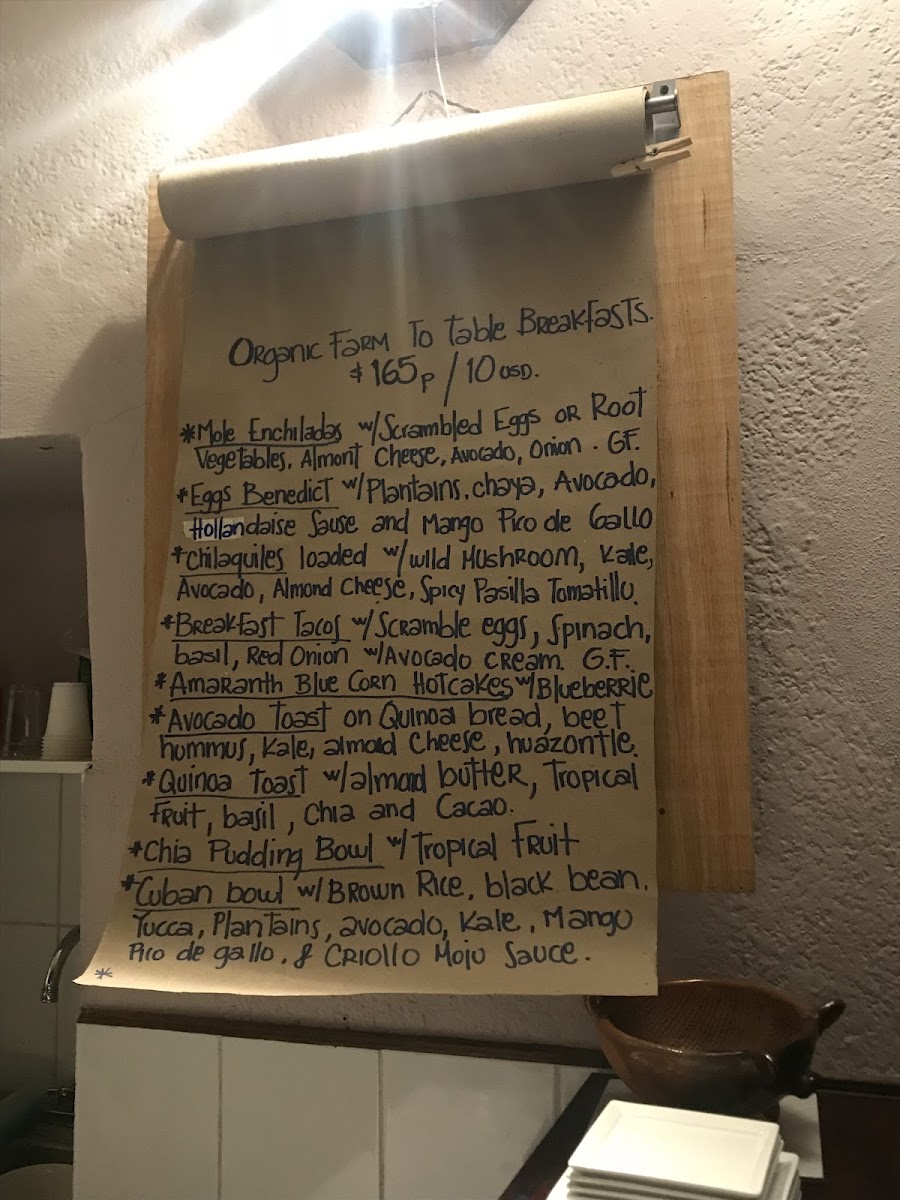 Organic Farm To Table Breakfasts.
$165p / 10 USD.
*Mole Enchiladas w/Scrambled Eggs or Root
Vegetables, Almont Cheese, Avocado, Onion. GF.
*Eggs Benedict w/Plantains, chaya, Avocado,
Hollandaise Sause and Mango Pico de Gallo
*Chilaquiles loaded w/wild Mushroom, Kale,
Avocado, Almond Cheese, Spicy Pasilla Tomatillo.
*Breakfast Tacos w/Scramble eggs, Spinach,
basil, Red Onion w/Avocado cream. G.F.
*Amaranth Blue Corn Hotcakes w/Blueberrie
*Avocado Toast on Quinoa bread, beet
hummus, Kale, almond Cheese, huazontle.
*Quinoa Toast w/almond butter, Tropical
Fruit, basil, Chia and Cacao.
*Chia Pudding Bowl w/Tropical Fruit
*Cuban bowl w/Brown Rice, black bean,
Yucca, Plantains, avocado, Kale, Mango
Pico de gallo, & Criollo Mojo Sauce.
*